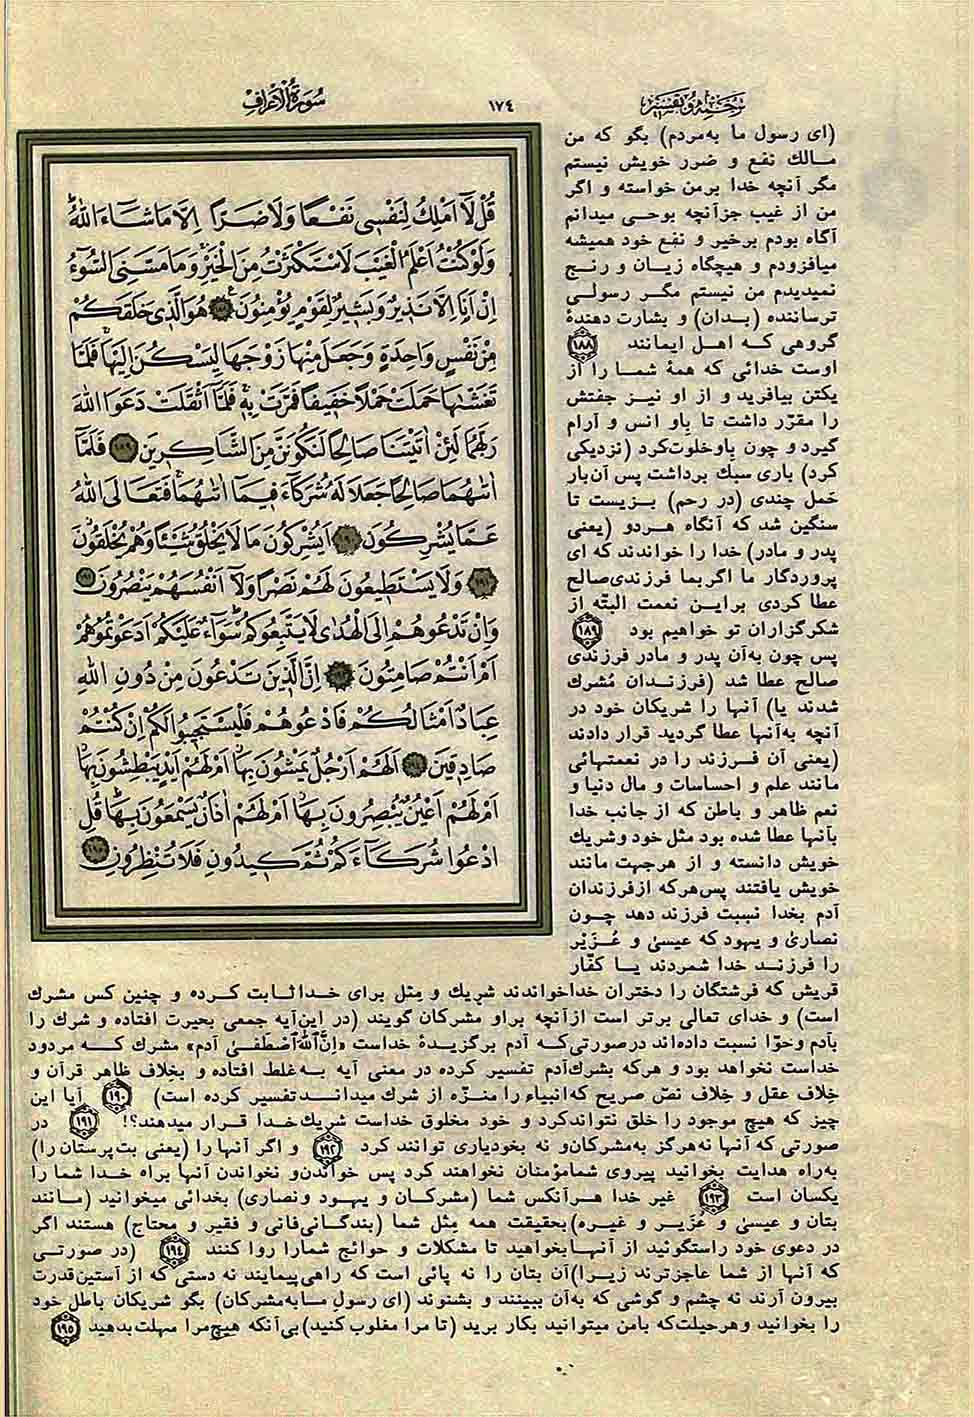 سُورَةُ الْأَعْرَافِ
١٧٤
ترجمه و تفسیر
قُلْ لَا أَمْلِكُ لِنَفْسِي نَفْعًا وَلَا ضَرًّا إِلَّا مَا شَاءَ اللَّهُ
وَلَوْ كُنْتُ أَعْلَمُ الْغَيْبَ لَاسْتَكْثَرْتُ مِنَ الْخَيْرِ وَمَا مَسَّنِيَ السُّوءُ
إِنْ أَنَا إِلَّا نَذِيرٌ وَبَشِيرٌ لِقَوْمٍ يُؤْمِنُونَ ١٨٨ هُوَ الَّذِي خَلَقَكُمْ
مِنْ نَفْسٍ وَاحِدَةٍ وَجَعَلَ مِنْهَا زَوْجَهَا لِيَسْكُنَ إِلَيْهَا فَلَمَّا
تَغَشَّيٰهَا حَمَلَتْ حَمْلًا خَفِيفًا فَمَرَّتْ بِهِ فَلَمَّا أَثْقَلَتْ دَعَوَا اللَّهَ
رَبَّهُمَا لَئِنْ اٰتَيْتَنَا صَالِحًا لَنَكُونَنَّ مِنَ الشَّاكِرِينَ ١٨٩ فَلَمَّا
اٰتٰيهُمَا صَالِحًا جَعَلَا لَهُ شُرَكَاءَ فِيمَا اٰتٰيهُمَا فَتَعَالَى اللَّهُ
عَمَّا يُشْرِكُونَ ١٩٠ أَيُشْرِكُونَ مَا لَا يَخْلُقُ شَيْئًا وَهُمْ يُخْلَقُونَ
١٩١ وَلَا يَسْتَطِيعُونَ لَهُمْ نَصْرًا وَلَا أَنْفُسَهُمْ يَنْصُرُونَ ١٩٢
وَإِنْ تَدْعُوهُمْ إِلَى الْهُدٰى لَا يَتَّبِعُوكُمْ سَوَاءٌ عَلَيْكُمْ أَدَعَوْتُمُوهُمْ
أَمْ أَنْتُمْ صَامِتُونَ ١٩٣ إِنَّ الَّذِينَ تَدْعُونَ مِنْ دُونِ اللَّهِ
عِبَادٌ أَمْثَالُكُمْ فَادْعُوهُمْ فَلْيَسْتَجِيبُوا لَكُمْ إِنْ كُنْتُمْ
صَادِقِينَ ١٩٤ أَلَهُمْ أَرْجُلٌ يَمْشُونَ بِهَا أَمْ لَهُمْ أَيْدٍ يَبْطِشُونَ بِهَا
أَمْ لَهُمْ أَعْيُنٌ يُبْصِرُونَ بِهَا أَمْ لَهُمْ اٰذَانٌ يَسْمَعُونَ بِهَا قُلِ
ادْعُوا شُرَكَاءَكُمْ ثُمَّ كِيدُونِ فَلَا تُنْظِرُونِ ١٩٥
(ای رسول ما به مردم) بگو که من
مالك نفع و ضرر خویش نیستم
مگر آنچه خدا برمن خواسته و اگر
من از غیب جز آنچه بوحی میدانم
آگاه بودم برخیر و نفع خود همیشه
میافزودم و هیچگاه زیان و رنج
نمیدیدم من نیستم مگر رسولی
ترساننده (بدان) و بشارت دهندهٔ
گروهی که اهل ایمانند ١٨٨
اوست خدائی که همهٔ شما را از
یکتن بیافرید و از او نیز جفتش
را مقرّر داشت تا باو انس و آرام
گیرد و چون باو خلوت کرد (نزدیکی
کرد) باری سبك برداشت پس آن بار
حمل چندی (در رحم) بزیست تا
سنگین شد که آنگاه هردو (یعنی
پدر و مادر) خدا را خواندند که ای
پروردگار ما اگر بما فرزندی صالح
عطا کردی براین نعمت البتّه از
شکرگزاران تو خواهیم بود ١٨٩
پس چون به آن پدر و مادر فرزندی
صالح عطا شد (فرزندان مُشرك
شدند یا) آنها را شریکان خود در
آنچه به آنها عطا گردید قرار دادند
(یعنی آن فرزند را در نعمتهائی
مانند علم و احساسات و مال دنیا و
نعم ظاهر و باطن که از جانب خدا
بآنها عطا شده بود مثل خود و شریك
خویش دانسته و از هرجهت مانند
خویش یافتند پس هرکه از فرزندان
آدم بخدا نسبت فرزند دهد چون
نصاریٰ و یهود که عیسیٰ و عُزَیْر
را فرزند خدا شمردند یا کفّار
قریش که فرشتگان را دختران خدا خواندند شریك و مِثل برای خدا ثابت کرده و چنین کس مشرك
است) و خدای تعالی برتر است از آنچه براو مشرکان گویند (در این آیه جمعی بحیرت افتاده و شرك را
بآدم و حوّا نسبت داده‌اند در صورتی که آدم برگزیدهٔ خداست «اِنَّ اللّٰهَ اصْطَفیٰ آدم» مشرك که مردود
خداست نخواهد بود و هرکه بشرك آدم تفسیر کرده در معنی آیه به غلط افتاده و بخِلاف ظاهر قرآن و
خِلاف عقل و خِلاف نصّ صریح که انبیاء را منزّه از شرك میداند تفسیر کرده است) ١٩٠ آیا این
چیز که هیچ موجود را خلق نتواند کرد و خود مخلوق خداست شریك خدا قرار میدهند؟! ١٩١ در
صورتی که آنها نه هرگز به مشرکان و نه بخود یاری توانند کرد ١٩٢ و اگر آنها را (یعنی بت پرستان را)
به راه هدایت بخوانید پیروی شما مؤمنان نخواهند کرد پس خواندن و نخواندن آنها براه خدا شما را
یکسان است ١٩٣ غیر خدا هر آنکس شما (مشرکان و یهود و نصاری) بخدائی میخوانید (مانند
بتان و عیسیٰ و عُزَیر و غیره) بحقیقت همه مِثل شما (بندگانی فانی و فقیر و محتاج) هستند اگر
در دعوی خود راستگوئید از آنها بخواهید تا مشکلات و حوائج شما را روا کنند ١٩٤ (در صورتی
که آنها از شما عاجزترند زیرا) آن بتان را نه پائی است که راهی پیمایند نه دستی که از آستین قدرت
بیرون آرند نه چشم و گوشی که به آن ببینند و بشنوند (ای رسول ما به مشرکان) بگو شریکان باطل خود
را بخوانید و هر حیلت که بامن میتوانید بکار برید (تا مرا مغلوب کنید) بی آنکه هیچ مرا مهلت بدهید ١٩٥